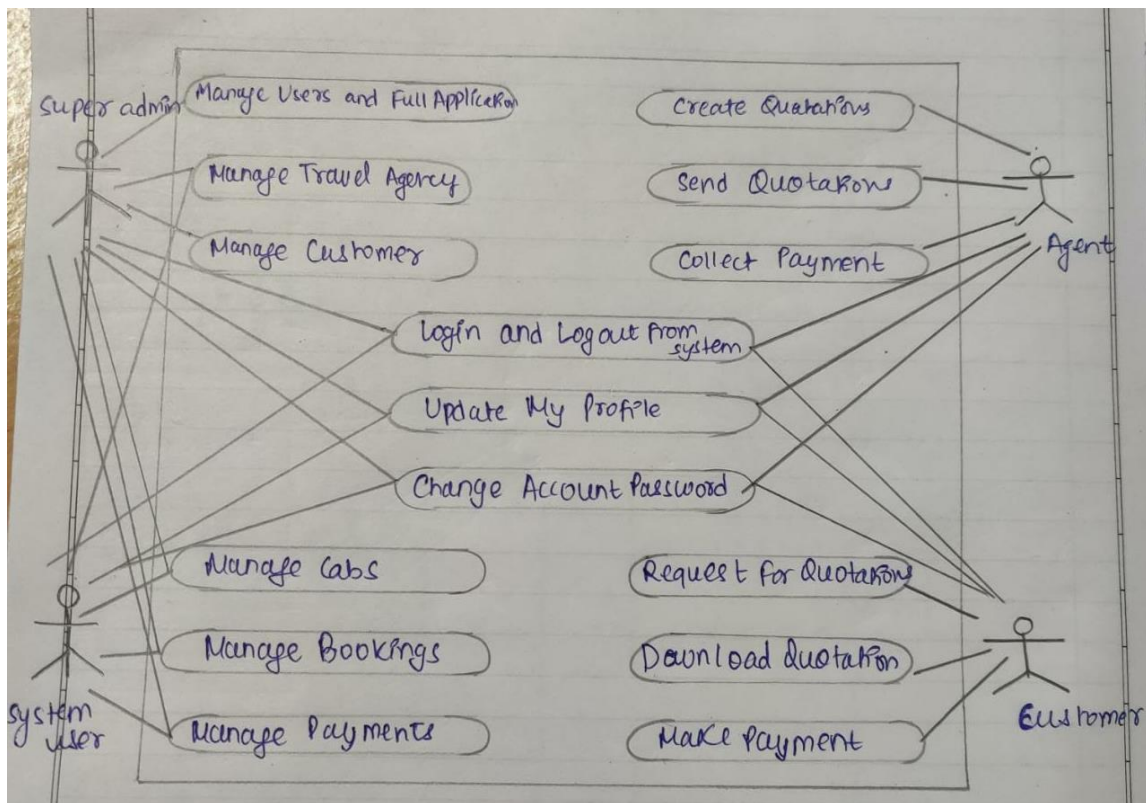 super admin
Manage Users and Full Application
Manage Travel Agency
Manage Customer
Create Quotations
Send Quotations
Collect Payment
Agent
Login and Logout from
system
Update My Profile
Change Account Password
Manage Cabs
Manage Bookings
Manage Payments
system
user
Request for Quotations
Download Quotation
Make Payment
Customer